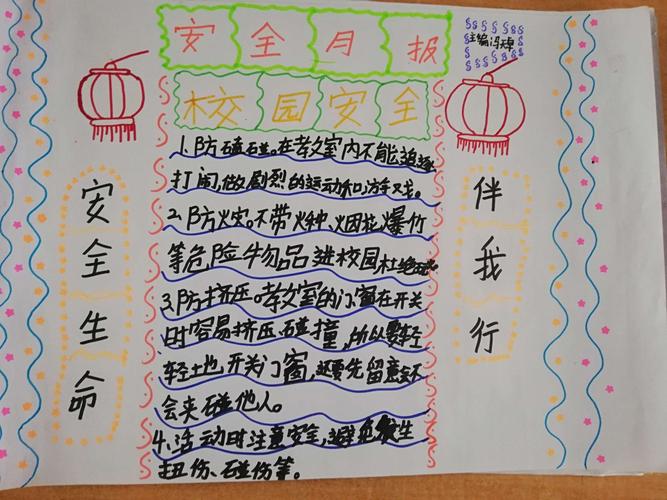 安全月报
主编冯
校园安全
1.防磕碰。在教室内不能追逐
打闹,做剧烈的运动和游戏。
2.防火灾。不带火种、烟花爆竹
等危险物品进校园杜绝
3.防挤压。教室的门窗在开关
时容易挤压碰撞,所以要轻
轻地开关门窗,还要先留意会不
会夹碰他人。
4.活动时注意安全,避免发生
扭伤、碰伤等。
安全生命
伴我行